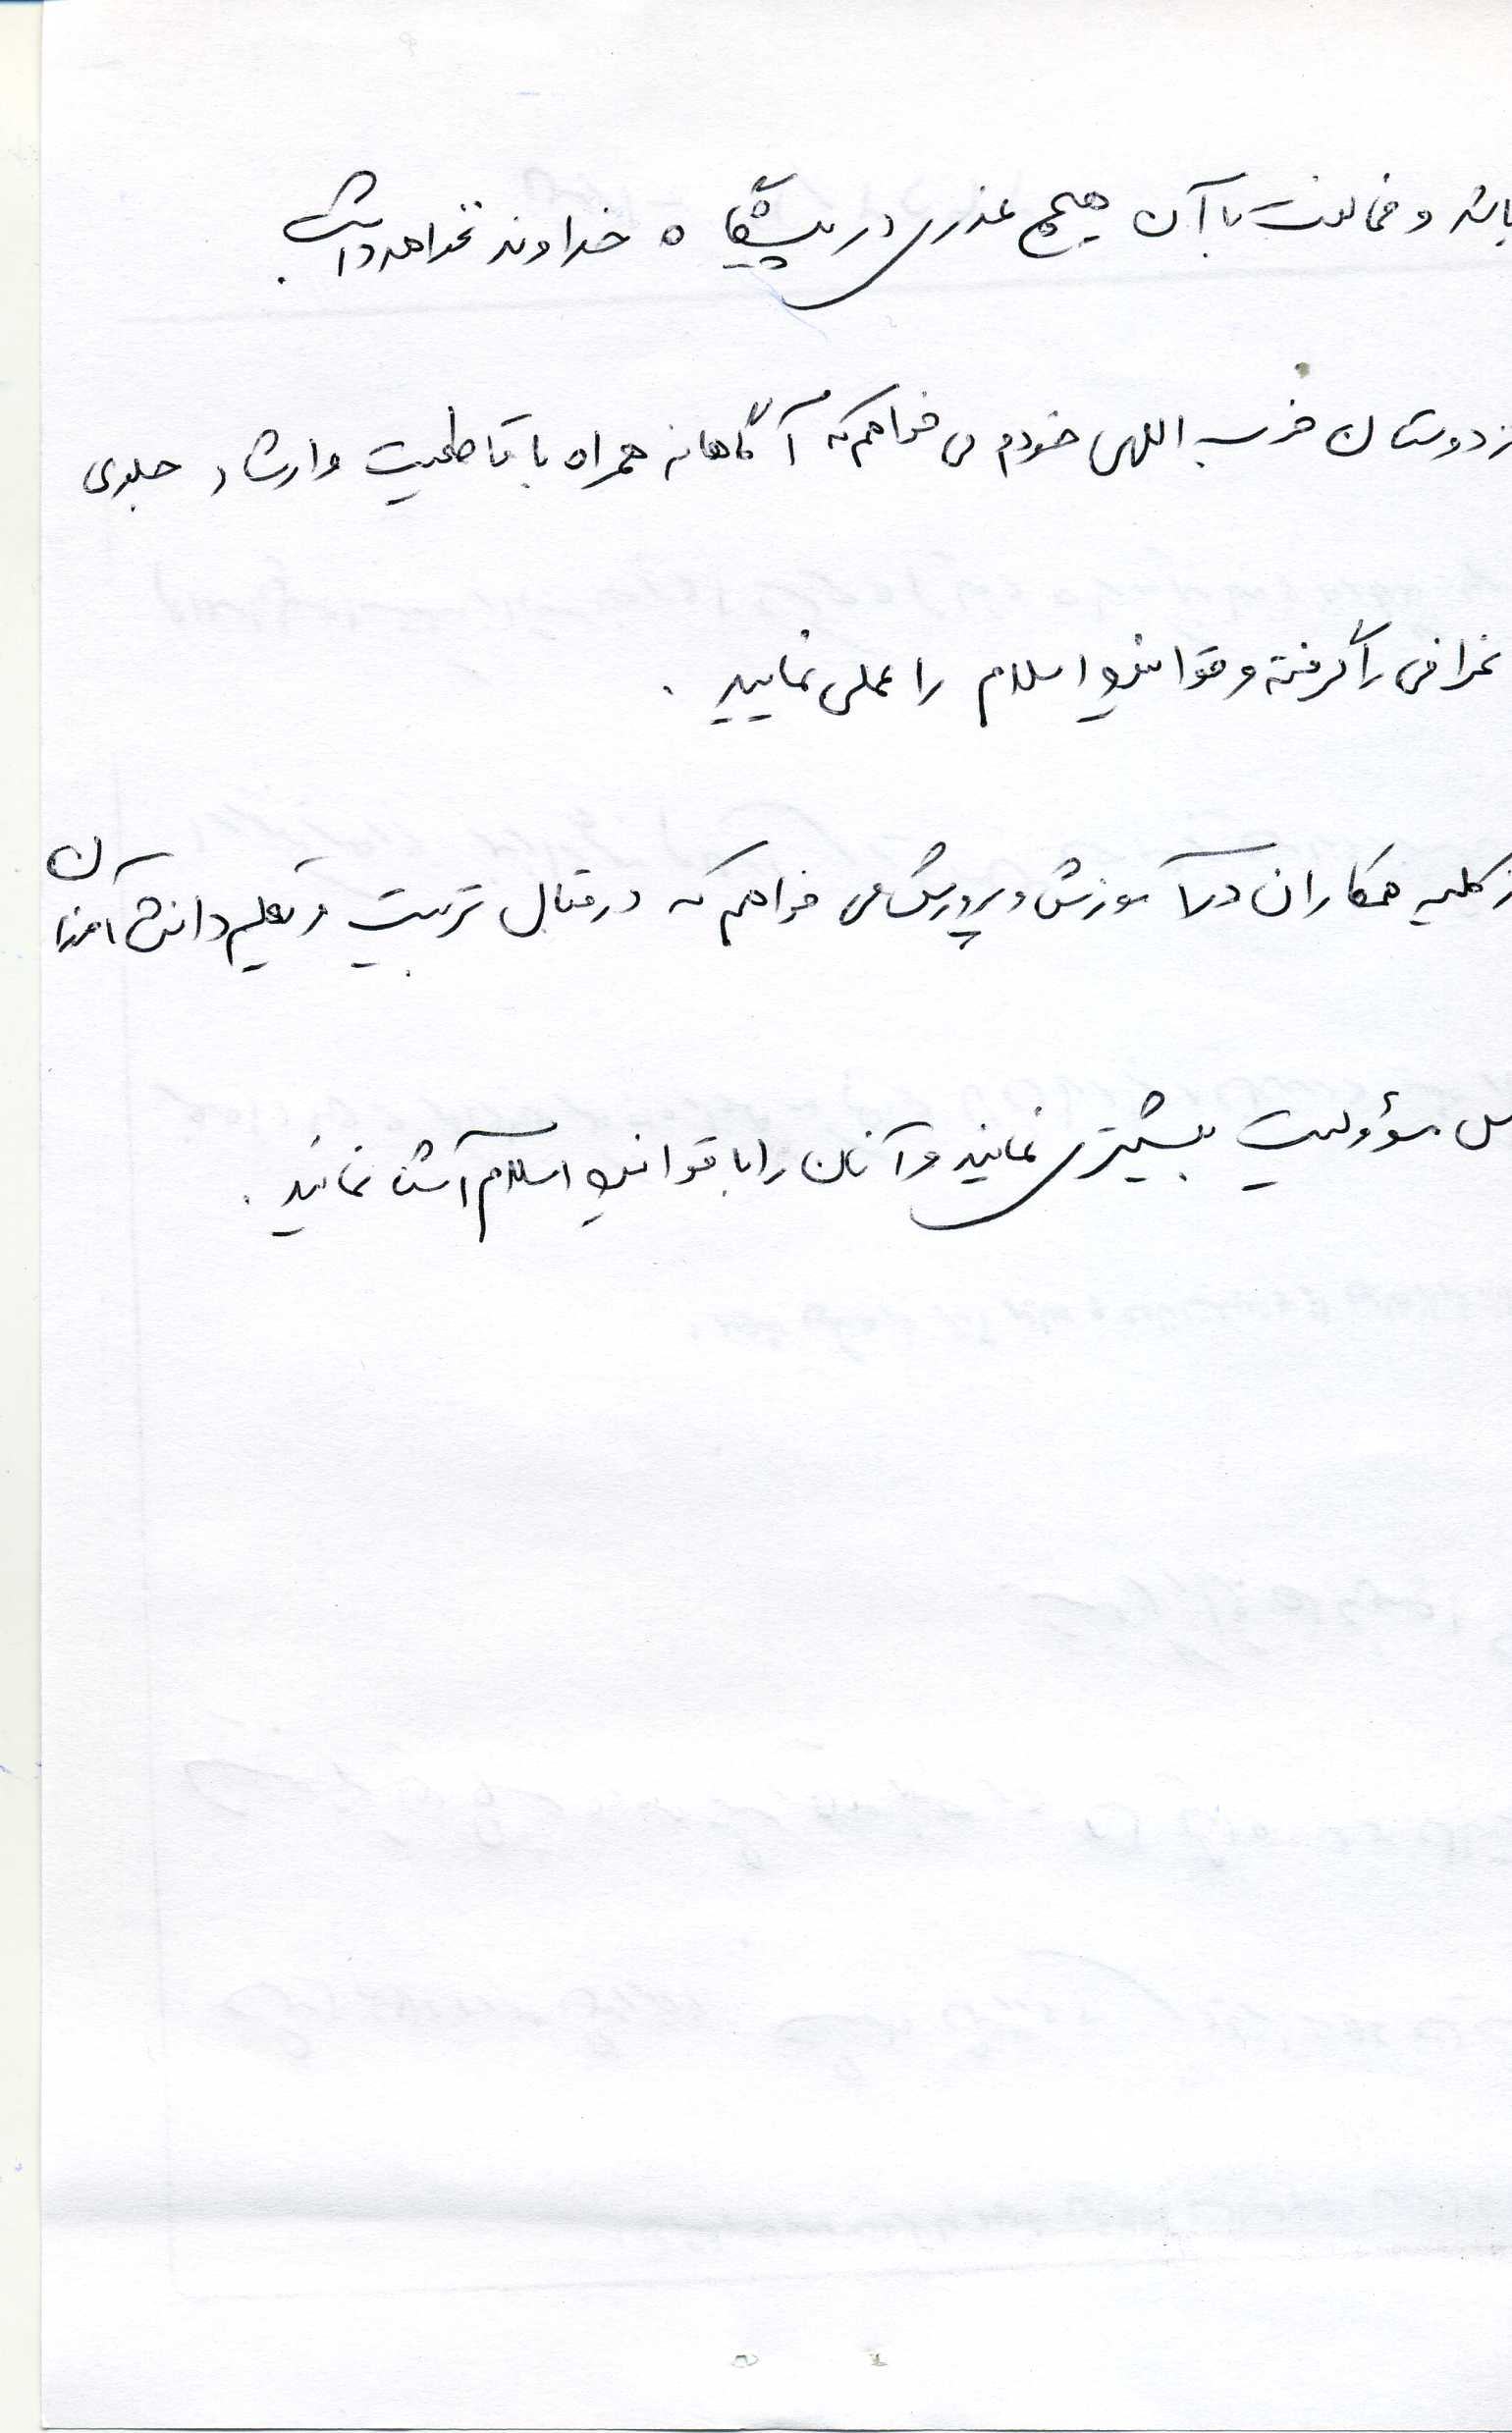 باشد و مخالفت با آن هیچ عذری در پیشگاه خداوند نخواهد داشت .
ز دوستان حزب اللهی خودم می خواهم که آگاهانه همراه با قاطعیت و ارشاد جلوی
نحرافی را گرفته و قوانین اسلام را عملی نمایید .
ز کلیه همکاران در آموزش و پرورش می خواهم که در قبال تربیت و تعلیم دانش آموزان
س مسؤولیت بیشتری نمایند و آنان را با قوانین اسلام آشنا نمایند .